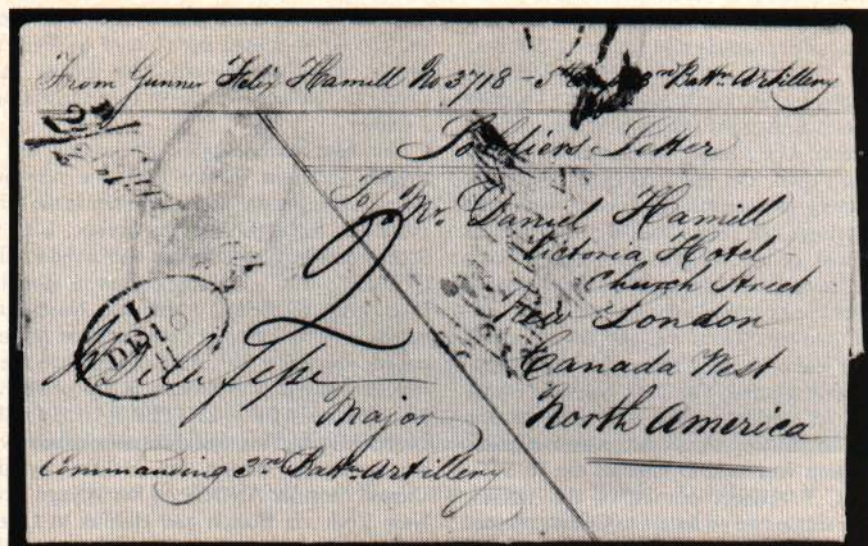 From Gunner Felix Hamill No 3718 - 3rd Battn Artillery
Soldiers Letter
To Mr. Daniel Hamill
Victoria Hotel
Church Street
New London
Canada West
North America
2
Major
Commanding 3rd Battn Artillery